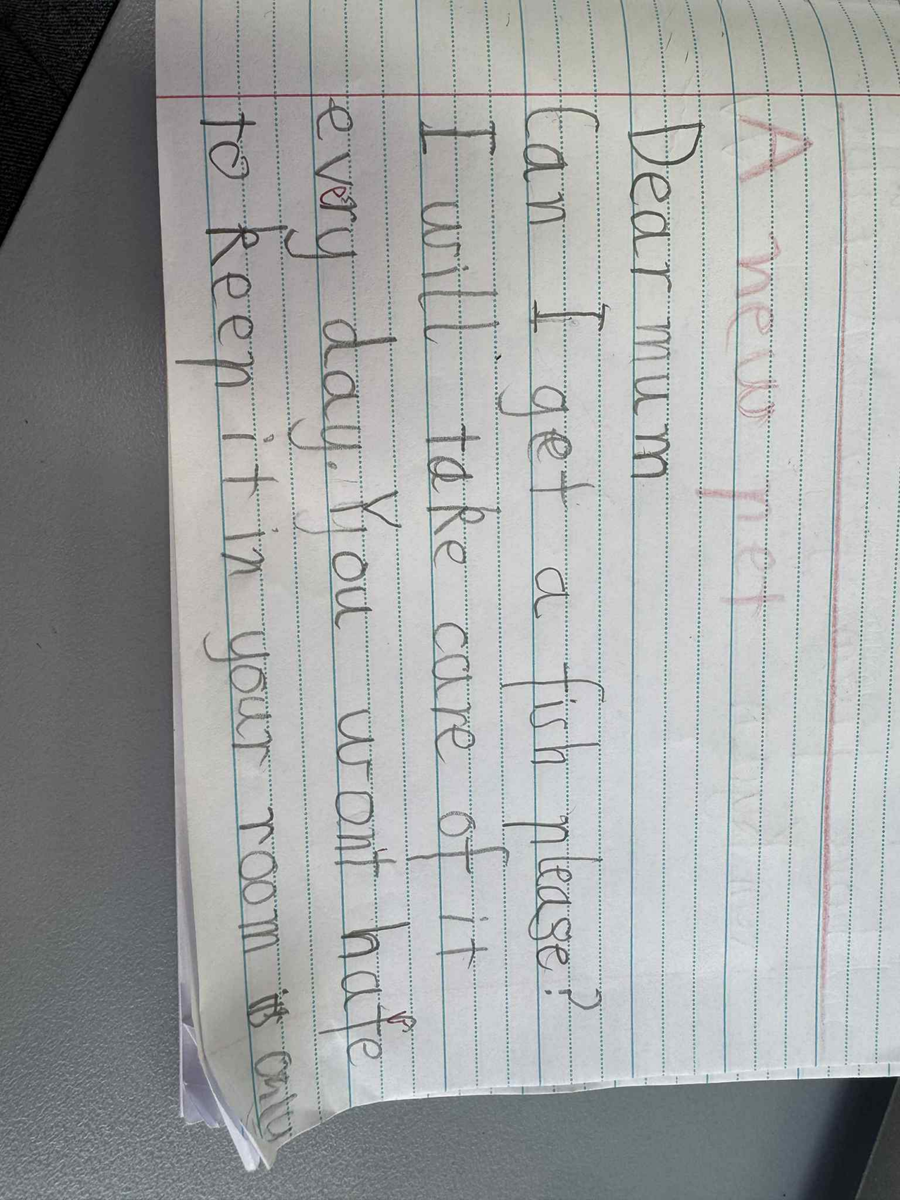 A new pet
Dear mum
Can I get a fish please?
I will take care of it
every day. You wont hafe
to keep it in your room its only